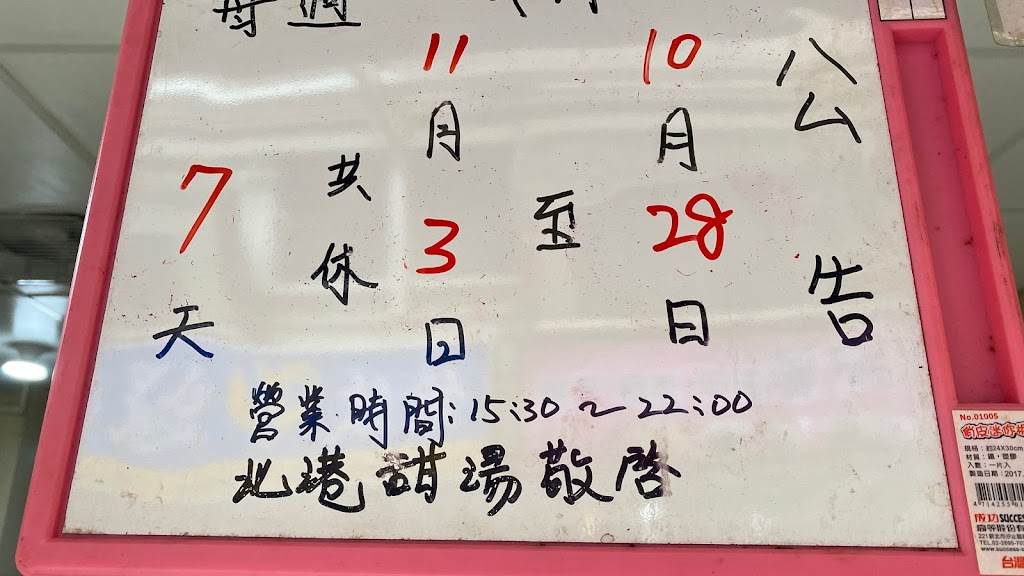 公告
10月28日
至
11月3日
共休
7天
營業時間:15:30~22:00
北港甜湯敬啓
No.01005
規格:約24X30cm
材質:鐵·塑膠
入數:一片入
製造日期:2017.
成功SUCCES
221新北市汐止區
TEL.02-2695-70
www.success-
台灣